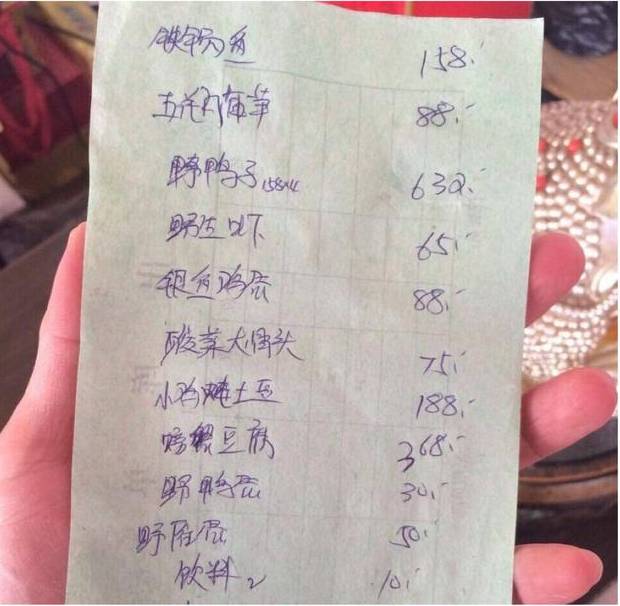 铁锅鱼 158.-
五花肉 88.-
野鸭子158x4 632.-
野生 65.-
银鱼鸡蛋 88.-
酸菜大骨头 75.-
小鸡炖土豆 188.-
螃蟹豆腐 368.-
野鸭蛋 30.-
野 蛋 50.-
饮料2 10.-